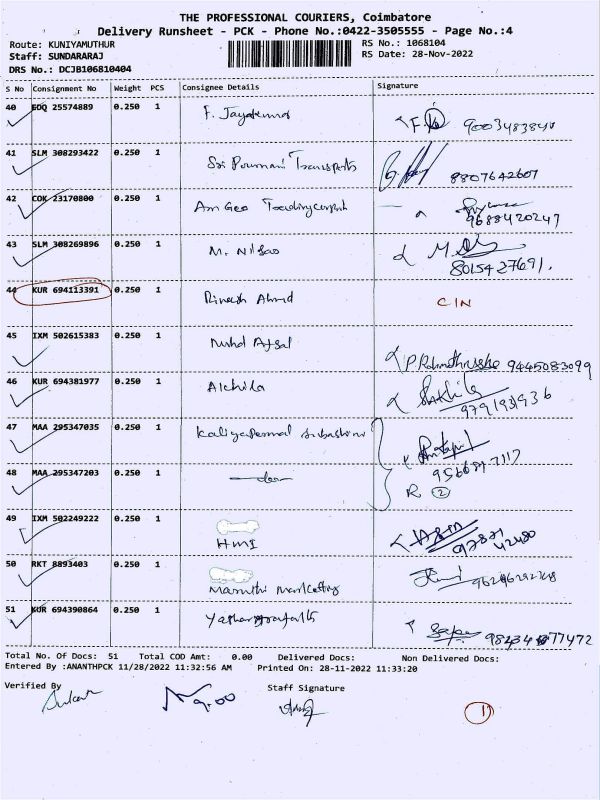 THE PROFESSIONAL COURIERS, Coimbatore
Delivery Runsheet - PCK - Phone No.:0422-3505555 - Page No.:4
Route: KUNIYAMUTHUR
RS No.: 1068104
Staff: SUNDARARAJ
RS Date: 28-Nov-2022
DRS No.: DCJB106810404
S No Consignment No Weight PCS Consignee Details Signature
40 EOQ 25574889 0.250 1 F. Jayakumar
41 SLM 308293422 0.250 1 Sri Pournami Transports 8807642607
42 COK 23170800 0.250 1 Am Geo 9688420247
43 SLM 308269896 0.250 1 M. 8015427691.
44 KUR 694113391 0.250 1 Dinesh Ahmd CIN
45 IXM 502615383 0.250 1 Mohd Afsal 9445083099
46 KUR 694381977 0.250 1 Akhila 9791931936
47 MAA 295347035 0.250 1 Kaliyaperumal
48 MAA 295347203 0.250 1 R 2
49 IXM 502249222 0.250 1 HMI
50 RKT 8893403 0.250 1 Maruthi Marketting
51 KUR 694390864 0.250 1
Total No. Of Docs: 51 Total COD Amt: 0.00 Delivered Docs: Non Delivered Docs:
Entered By :ANANTHPCK 11/28/2022 11:32:56 AM Printed On: 28-11-2022 11:33:20
Verified By Staff Signature
9.00
11